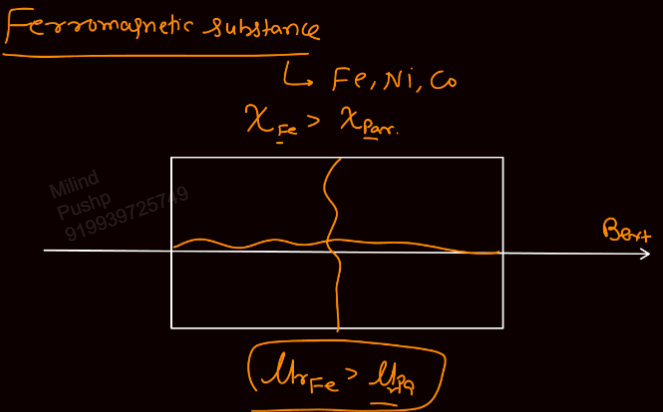 Ferromagnetic substance
↳ Fe, Ni, Co
χ_Fe > χ_Par.
Milind
Pushp
919939725749
Bext
μr_Fe > μr_Pa